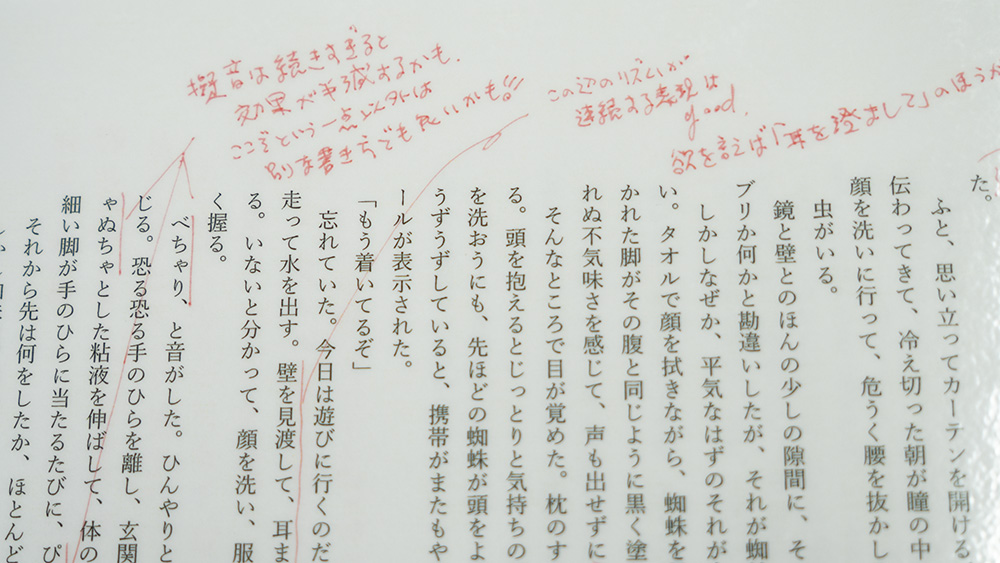 擬音は続きすぎると
効果が半減するかも、
ここぞという一点以外は
別な書き方でも良いかも!!!
この辺のリズムが
連続する表現は
good.
欲を言えば「耳を澄まして」のほうが
た。
ふと、思い立ってカーテンを開ける
伝わってきて、冷え切った朝が瞳の中
顔を洗いに行って、危うく腰を抜かし
虫がいる。
鏡と壁とのほんの少しの隙間に、そ
ブリか何かと勘違いしたが、それが蜘
しかしなぜか、平気なはずのそれが
い。タオルで顔を拭きながら、蜘蛛を
かれた脚がその腹と同じように黒く塗
れぬ不気味さを感じて、声も出せずに
そんなところで目が覚めた。枕のす
る。頭を抱えるとじっとりと気持ちの
を洗おうにも、先ほどの蜘蛛が頭をよ
うずうずしていると、携帯がまたもや
ールが表示された。
「もう着いてるぞ」
忘れていた。今日は遊びに行くのだ
走って水を出す。壁を見渡して、耳ま
る。いないと分かって、顔を洗い、服
く握る。
べちゃり、と音がした。ひんやりと
じる。恐る恐る手のひらを離し、玄関
ゃぬちゃとした粘液を伸ばして、体の
細い脚が手のひらに当たるたびに、ぴ
それから先は何をしたか、ほとんど